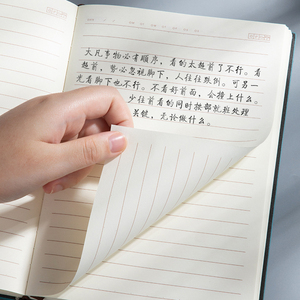 大凡事物必有顺序，看的太超前了不行。看
超前，势必忽视脚下，人往往跌倒。可另一
光看脚下也不行。不看好前面，会撞上什么。
少往前看的同时按部就班处理
关键，无论做什么。